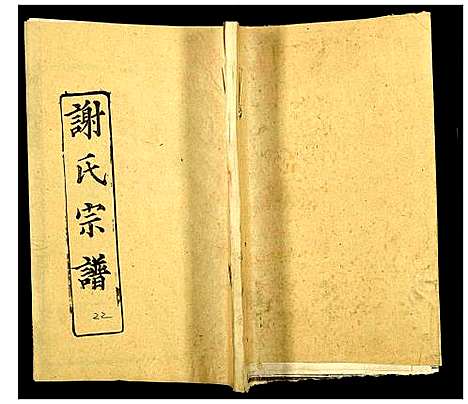 謝氏宗譜
22